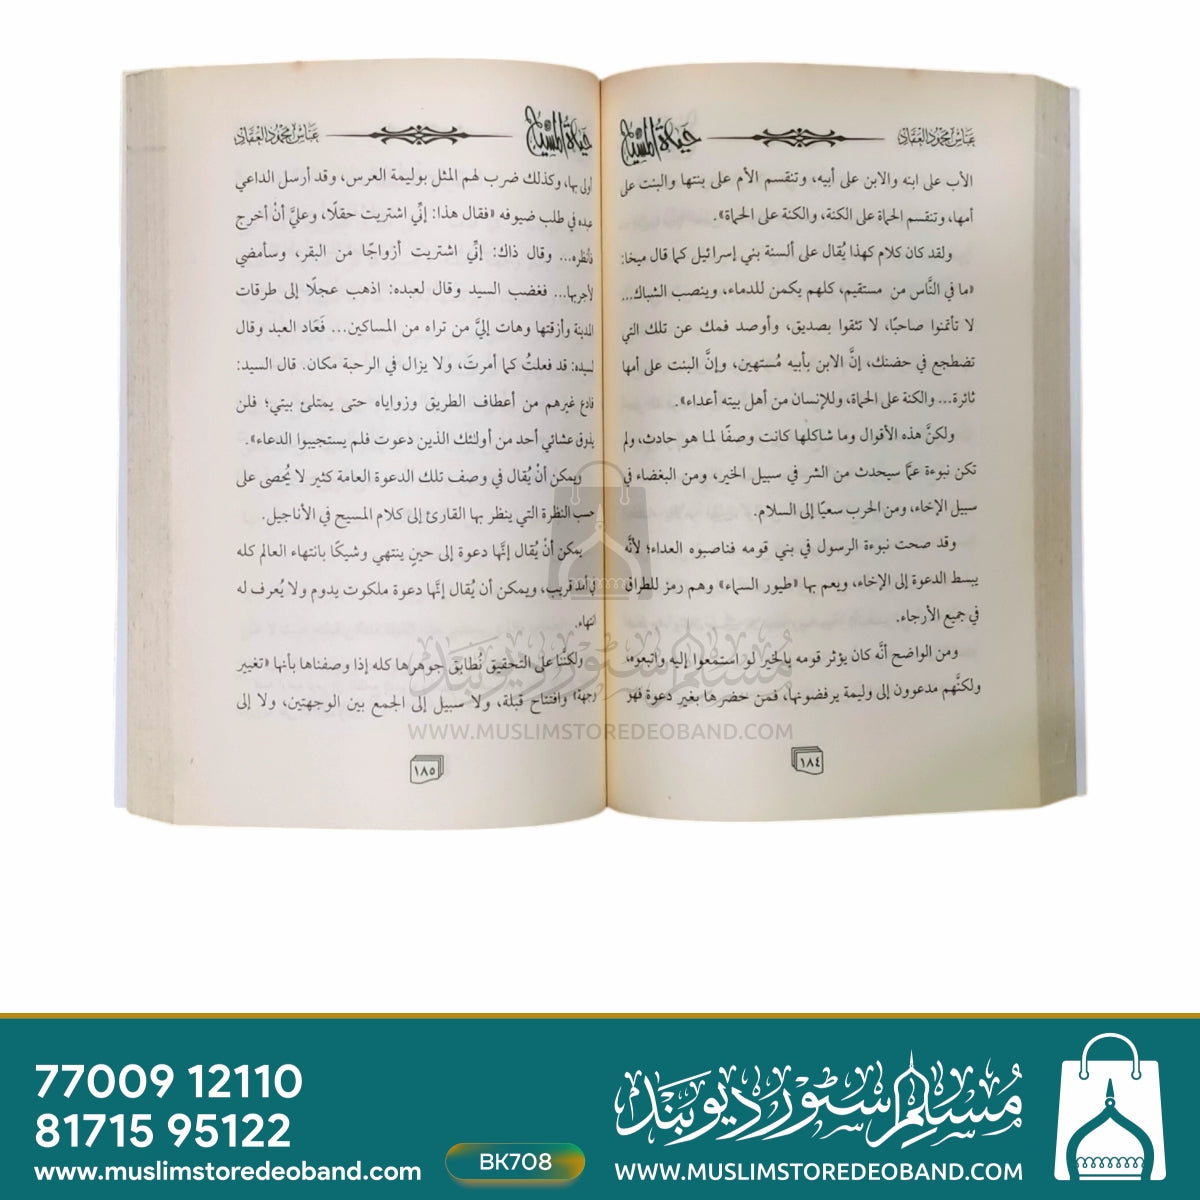 عباس محمود العقاد
حياة المسيح
الأب على ابنه والابن على أبيه، وتنقسم الأم على بنتها والبنت على
أمها، وتنقسم الحماة على الكنة، والكنة على الحماة».
ولقد كان كلام كهذا يُقال على ألسنة بني إسرائيل كما قال ميخا:
«ما في النَّاس من مستقيم، كلهم يكمن للدماء، وينصب الشباك...
لا تأتمنوا صاحبًا، لا تثقوا بصديق، وأوصد فمك عن تلك التي
تضطجع في حضنك، إنَّ الابن بأبيه مُستهين، وإنَّ البنت على أمها
ثائرة... والكنة على الحماة، وللإنسان من أهل بيته أعداء».
ولكنَّ هذه الأقوال وما شاكلها كانت وصفًا لما هو حادث، ولم
تكن نبوءة عمَّا سيحدث من الشر في سبيل الخير، ومن البغضاء في
سبيل الإخاء، ومن الحرب سعيًا إلى السلام.
وقد صحت نبوءة الرسول في بني قومه فناصبوه العداء؛ لأنَّه
يبسط الدعوة إلى الإخاء، ويعم بها «طيور السماء» وهم رمز للطراق
في جميع الأرجاء.
ومن الواضح أنَّه كان يؤثر قومه بالخير لو استمعوا إليه واتبعوه،
ولكنَّهم مدعوون إلى وليمة يرفضونها، فمن حضرها بغير دعوة فهو
١٨٤
حياة المسيح
عباس محمود العقاد
أولى بها، وكذلك ضرب لهم المثل بوليمة العرس، وقد أرسل الداعي
عبده في طلب ضيوفه «فقال هذا: إنِّي اشتريت حقلًا، وعليَّ أنْ أخرج
فأنظره... وقال ذاك: إنِّي اشتريت أزواجًا من البقر، وسأمضي
لأجربها... فغضب السيد وقال لعبده: اذهب عجلًا إلى طرقات
المدينة وأزقتها وهات إليَّ من تراه من المساكين... فَعَاد العبد وقال
لسيده: قد فعلتُ كما أمرتَ، ولا يزال في الرحبة مكان. قال السيد:
فادع غيرهم من أعطاف الطريق وزواياه حتى يمتلئ بيتي؛ فلن
يذوق عشائي أحد من أولئك الذين دعوت فلم يستجيبوا الدعاء».
ويمكن أنْ يُقال في وصف تلك الدعوة العامة كثير لا يُحصى على
حسب النظرة التي ينظر بها القارئ إلى كلام المسيح في الأناجيل.
يمكن أنْ يُقال إنَّها دعوة إلى حينٍ ينتهي وشيكًا بانتهاء العالم كله
في أمد قريب، ويمكن أن يُقال إنَّها دعوة ملكوت يدوم ولا يُعرف له
انتهاء.
ولكنَّنا على التحقيق نُطابق جوهرها كله إذا وصفناها بأنها «تغيير
وجهة» وافتتاح قبلة، ولا سبيل إلى الجمع بين الوجهتين، ولا إلى
١٨٥
مسلم سٹور ديوبند
WWW.MUSLIMSTOREDEOBAND.COM
77009 12110
81715 95122
www.muslimstoredeoband.com
BK708
مسلم سٹور ديوبند
WWW.MUSLIMSTOREDEOBAND.COM